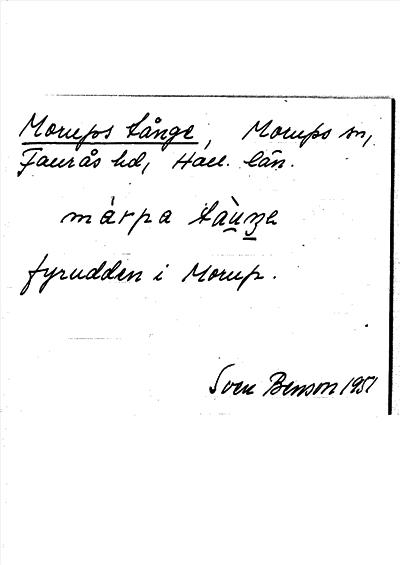 Morups tånge, Morups sn,
Faurås hd, Hall. län.
márpa
fyrudden i Morup.
Sven Benson 1951